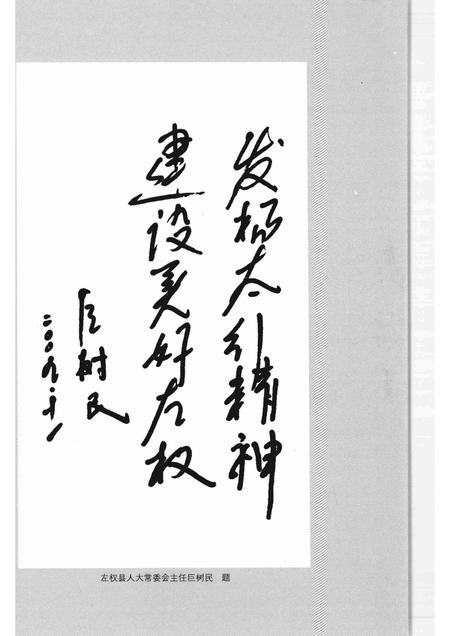 发扬太行精神
建设美好左权
巨树民
二〇〇九.十一
左权县人大常委会主任巨树民 题